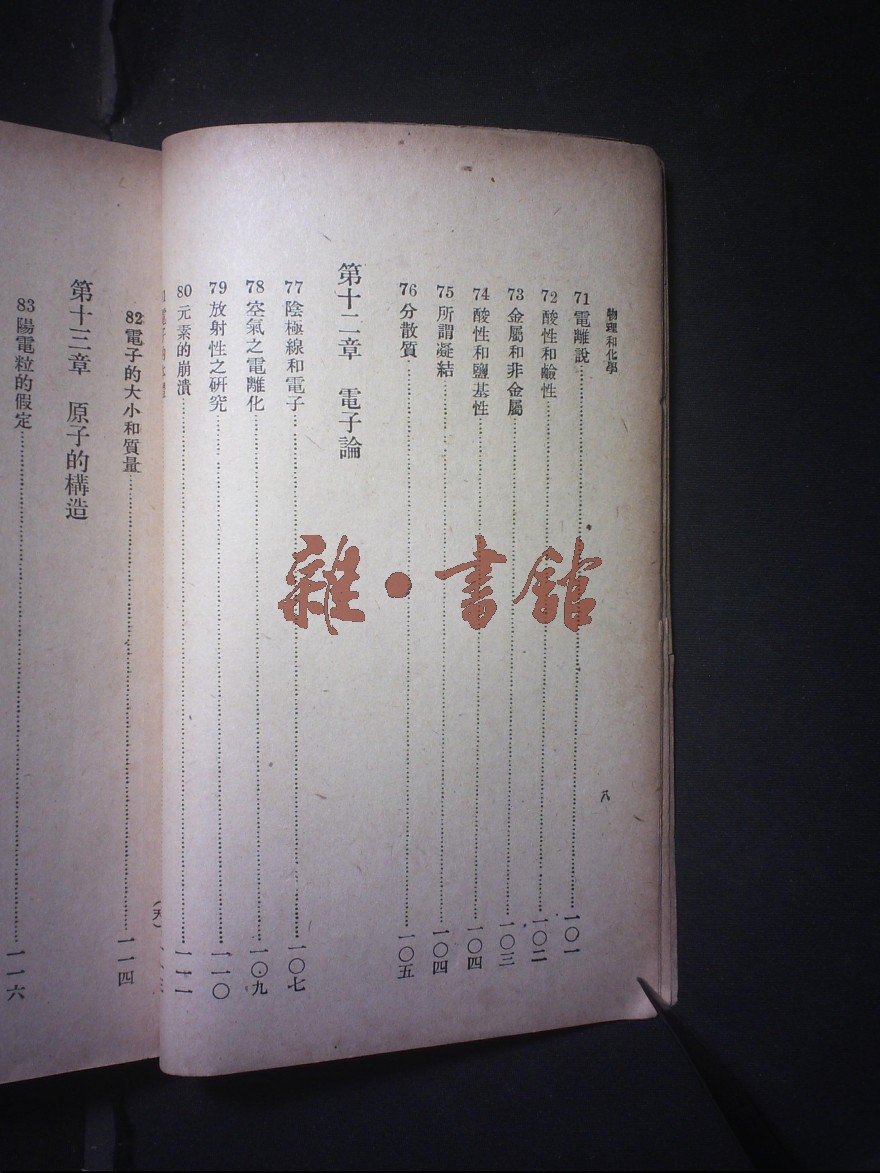 物理和化學
八
71 電離說 一〇一
72 酸性和鹼性 一〇二
73 金屬和非金屬 一〇三
74 酸性和鹽基性 一〇四
75 所謂凝結 一〇四
76 分散質 一〇五
第十二章 電子論
77 陰極線和電子 一〇七
78 空氣之電離化 一〇九
79 放射性之研究 一一〇
80 元素的崩潰 一一一
82 電子的大小和質量 一一四
第十三章 原子的構造
83 陽電粒的假定 一一六
雜·書館